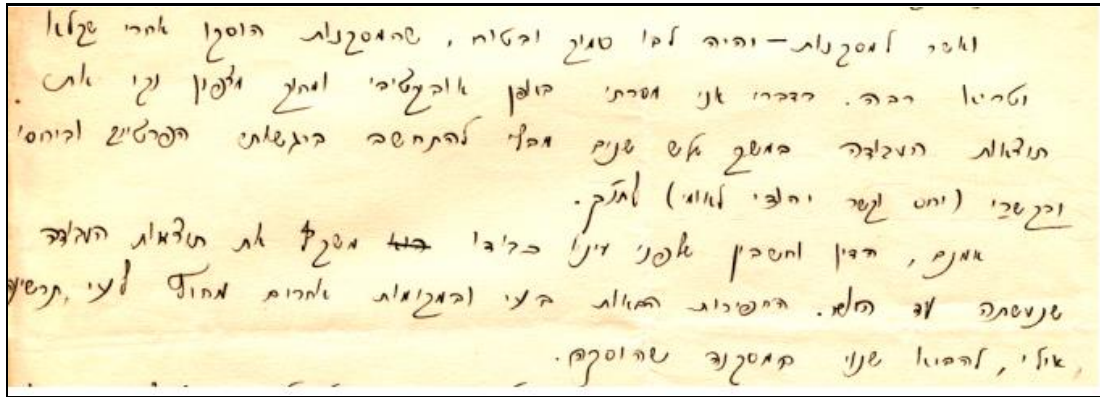 ואשר למסקנות – יהיה לבו סמוך ובטוח, שהמסקנות הוסקו אחרי שקלא
וטריא רבה. בדברי אני מסרתי באופן אוביקטיבי ומתוך מצפון נקי את
תוצאות העבודה במשך שלש שנים מבלי להתחשב ברגשותי הפרטיים וביחסי
ובקשרי (יחס וקשר יהודי לאומי) לתנ"ך.
אמנם, הדין וחשבון שלפני עיני כבודו משקף את תוצאות העבודה
שנעשתה עד הלום. החפירות הבאות בעי ובמקומות אחרים מחוץ לעי,
אולי, להביא שנוי במסקנה שהוסקה.